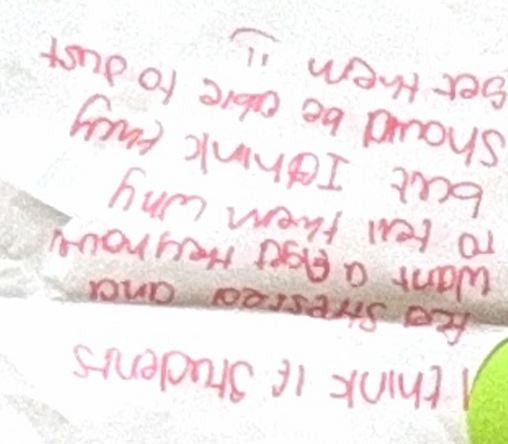 I think if students
feel stressed and
want a fidget they should
to tell them why
but I think they
should be able to just
get them :)